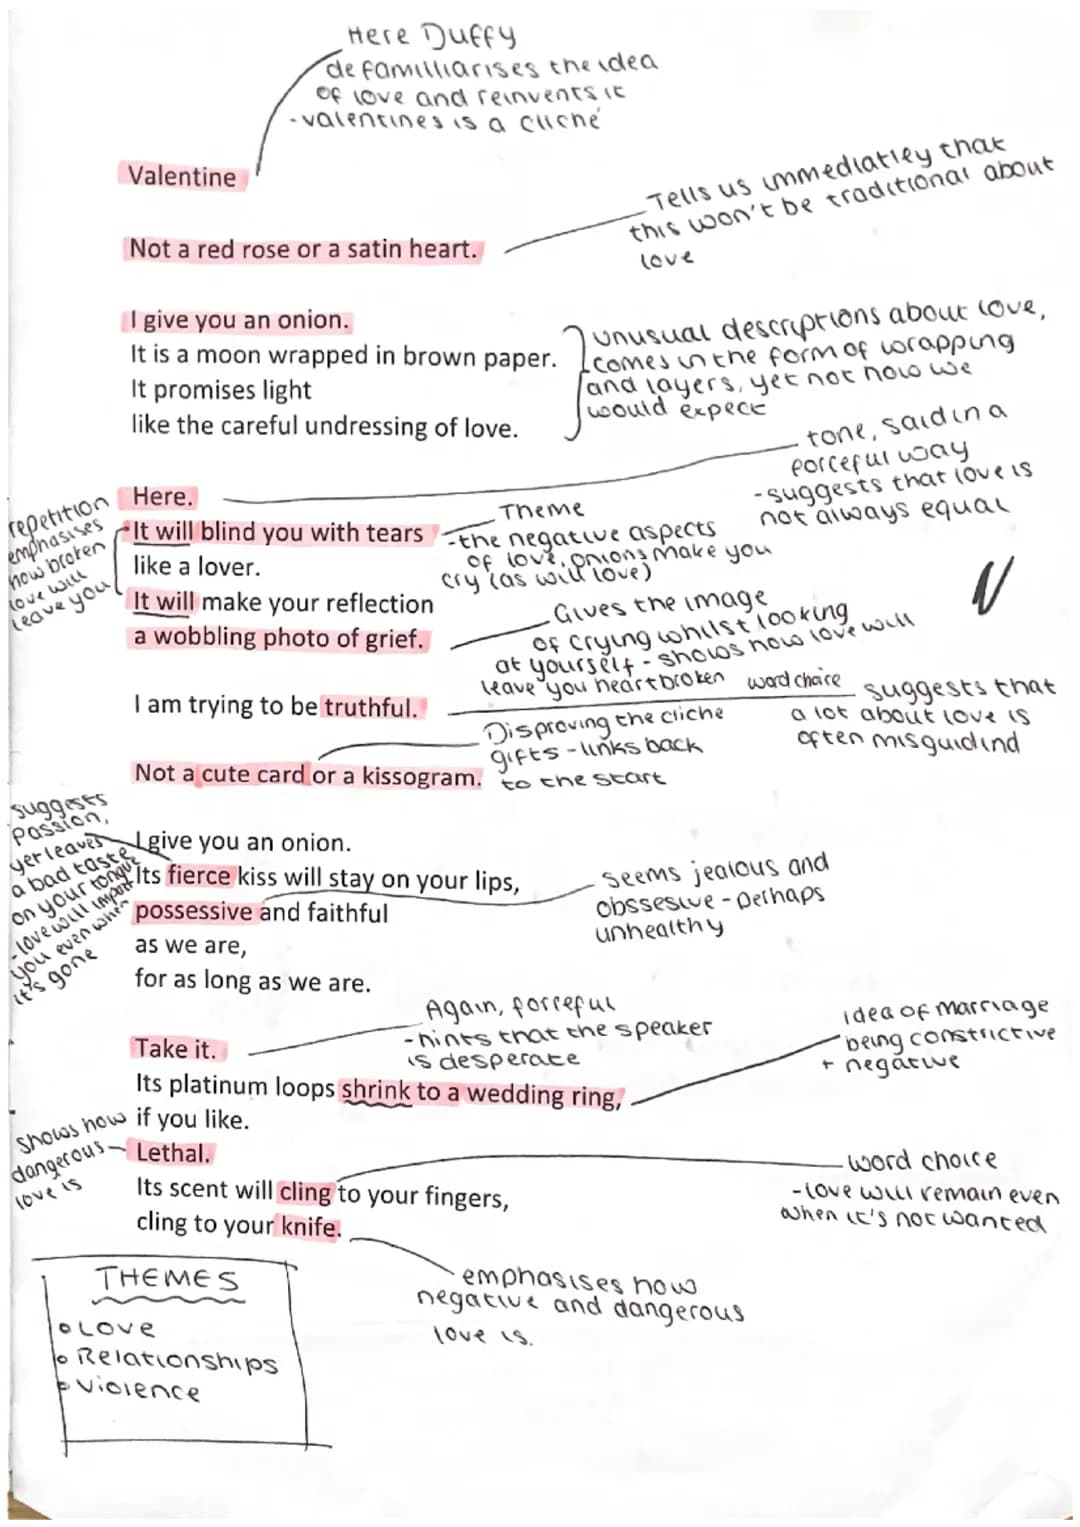 Here Duffy
defamilliarises the idea
of love and reinvents it
-valentines is a cliché
Valentine
Tells us immediatley that
this won't be traditional about
love
Not a red rose or a satin heart.
I give you an onion.
It is a moon wrapped in brown paper.
It promises light
like the careful undressing of love.
unusual descriptions about love,
comes in the form of wrapping
and layers, yet not how we
would expect
tone, said in a
forceful way
-suggests that love is
not always equal
Here.
It will blind you with tears
like a lover.
It will make your reflection
a wobbling photo of grief.
repetition
emphasises
how broken
love will
leave you
Theme
-the negative aspects
of love, onions make you
cry (as will love)
Gives the image
of crying whilst looking
at yourself - shows how love will
leave you heartbroken
I am trying to be truthful.
word choice
suggests that
a lot about love is
often misguidind
Not a cute card or a kissogram.
Disproving the cliche
gifts - links back
to the start
I give you an onion.
Its fierce kiss will stay on your lips,
possessive and faithful
as we are,
for as long as we are.
suggests
passion,
yet leaves
a bad taste
on your tongue
-love will impact
you even when
it's gone
seems jealous and
obssesive - perhaps
unhealthy
Take it.
Its platinum loops shrink to a wedding ring,
if you like.
Again, forceful
-hints that the speaker
is desperate
idea of marriage
being constrictive
+ negative
Lethal.
Its scent will cling to your fingers,
cling to your knife.
shows how
dangerous
love is
word choice
-love will remain even
when it's not wanted
emphasises how
negative and dangerous
love is.
THEMES
• Love
• Relationships
• Violence